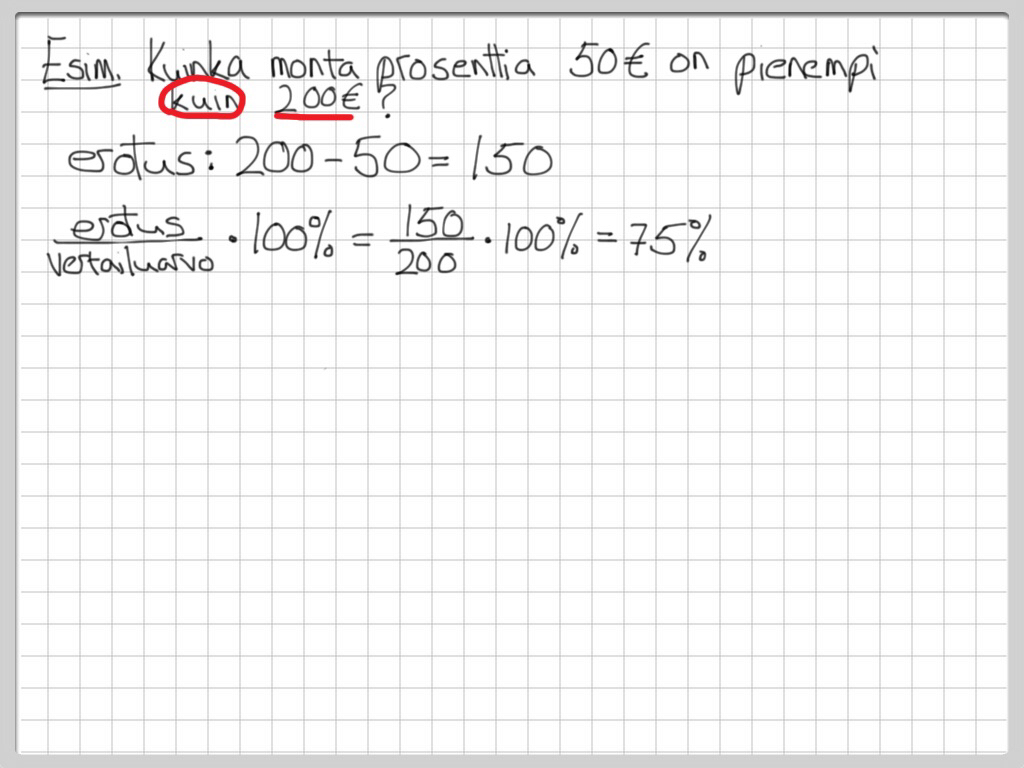 Esim. Kuinka monta prosenttia 50€ on pienempi
kuin 200€?
erotus: 200 - 50 = 150
erotus/vertailuarvo · 100% = 150/200 · 100% = 75%